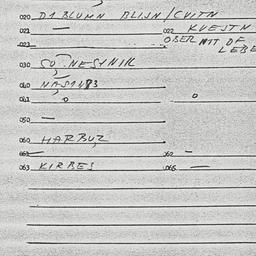 020 D1BLUMN BLIJN/CVITN
021 — 022 KVEJTN
023 OBER MIT DE
LEBE
030 SO NESINIK
040
061 o o
050 —
060 HARBUZ
061 — 062 –
063 KIRBES 066 —